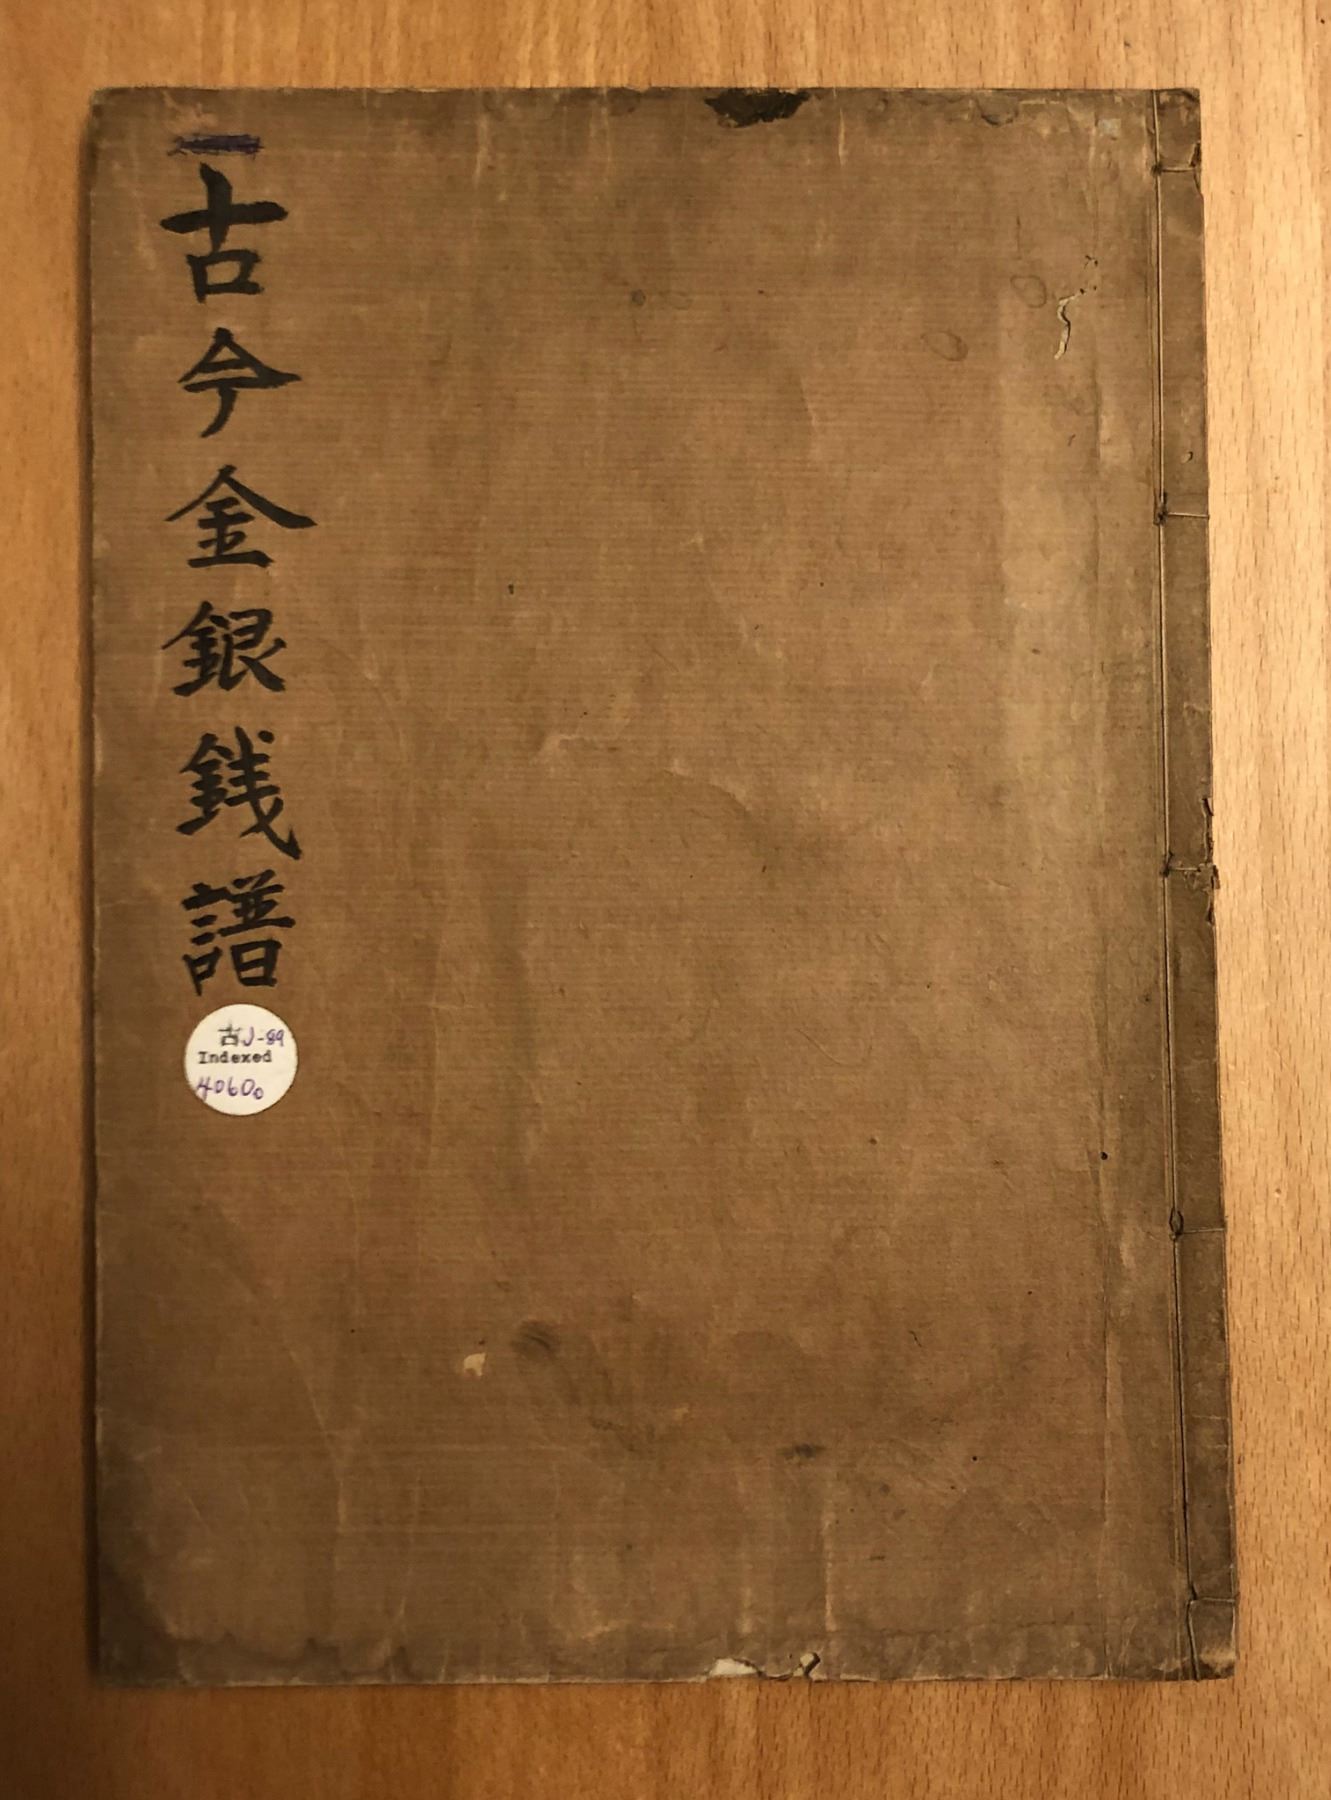 古今金銀銭譜
古J-89
Indexed
40600